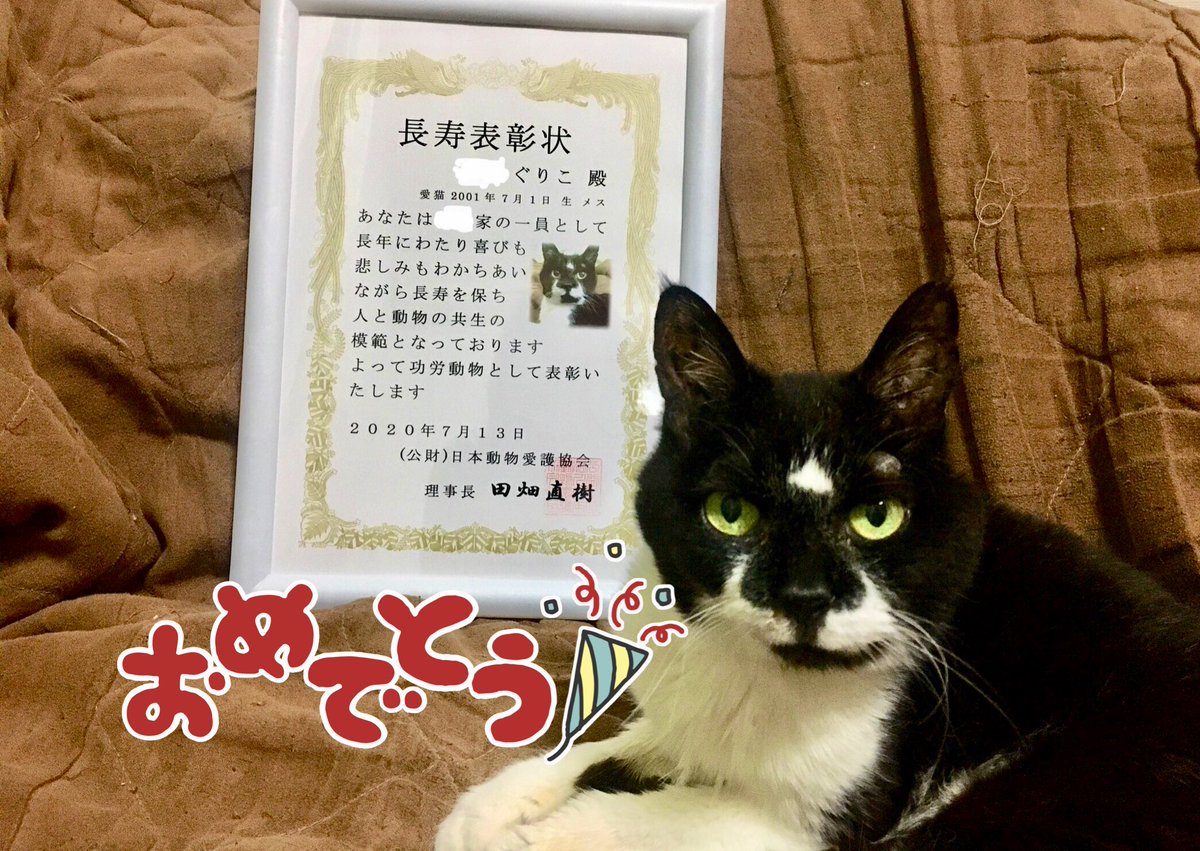 長寿表彰状
ぐりこ 殿
愛猫 2001年7月1日 生 メス
あなたは 家の一員として
長年にわたり喜びも
悲しみもわかちあい
ながら長寿を保ち
人と動物の共生の
模範となっております
よって功労動物として表彰い
たします
2020年7月13日
(公財)日本動物愛護協会
理事長 田畑直樹
おめでとう